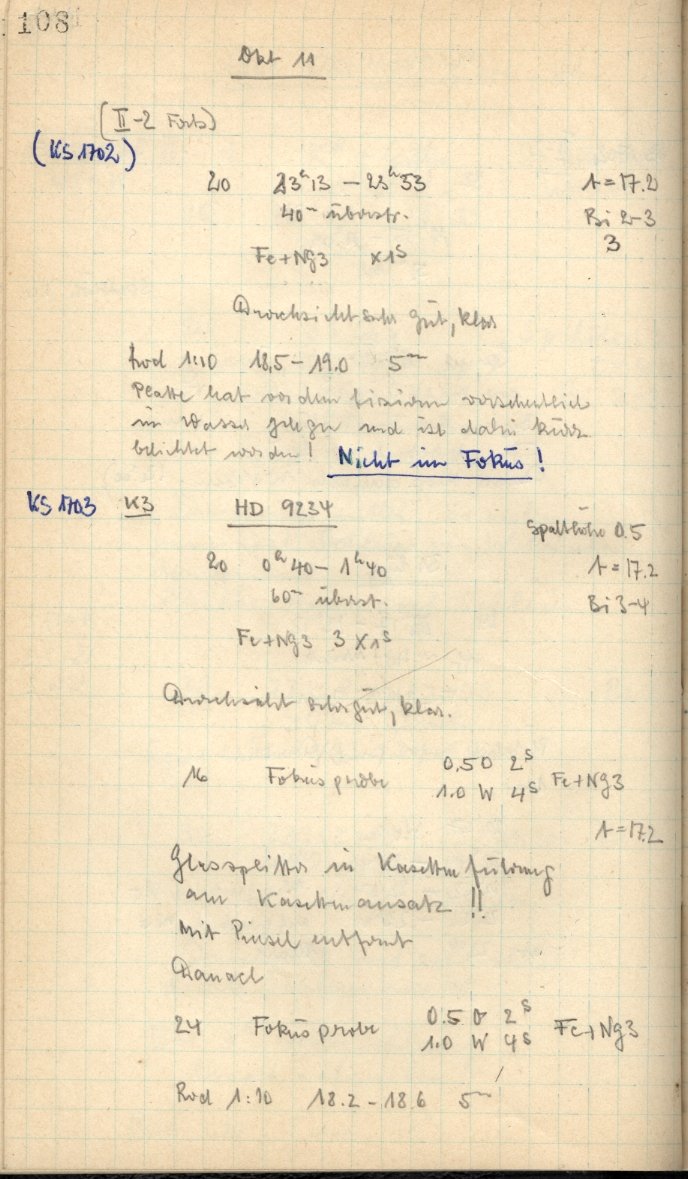 108
Okt 11
(II-2 Forts)
(KS 1702)
20 23h13 – 23h53 t=17.2
40m überstr. Bi 2-3
3
Fe+Ng3 x1s
Durchsicht sehr gut, klar
Rod 1:10 18,5–19.0 5m
Platte hat vor dem fixieren versehentlich
in Wasser gelegen und ist dabei kurz
belichtet worden! Nicht im Fokus!
KS 1703 K3 HD 9234
Spalthöhe 0.5
20 0h40 – 1h40 t=17.2
60m überst. Bi 3-4
Fe+Ng3 3x1s
Durchsicht sehr gut, klar.
16 Fokusprobe 0.5 O 2s
1.0 W 4s Fe+Ng3
t=17.2
Glassplitter in Kasettenführung
am Kasettenansatz !!
Mit Pinsel entfernt
Danach
24 Fokusprobe 0.5 O 2s
1.0 W 4s Fe+Ng3
Rod 1:10 18.2–18.6 5m